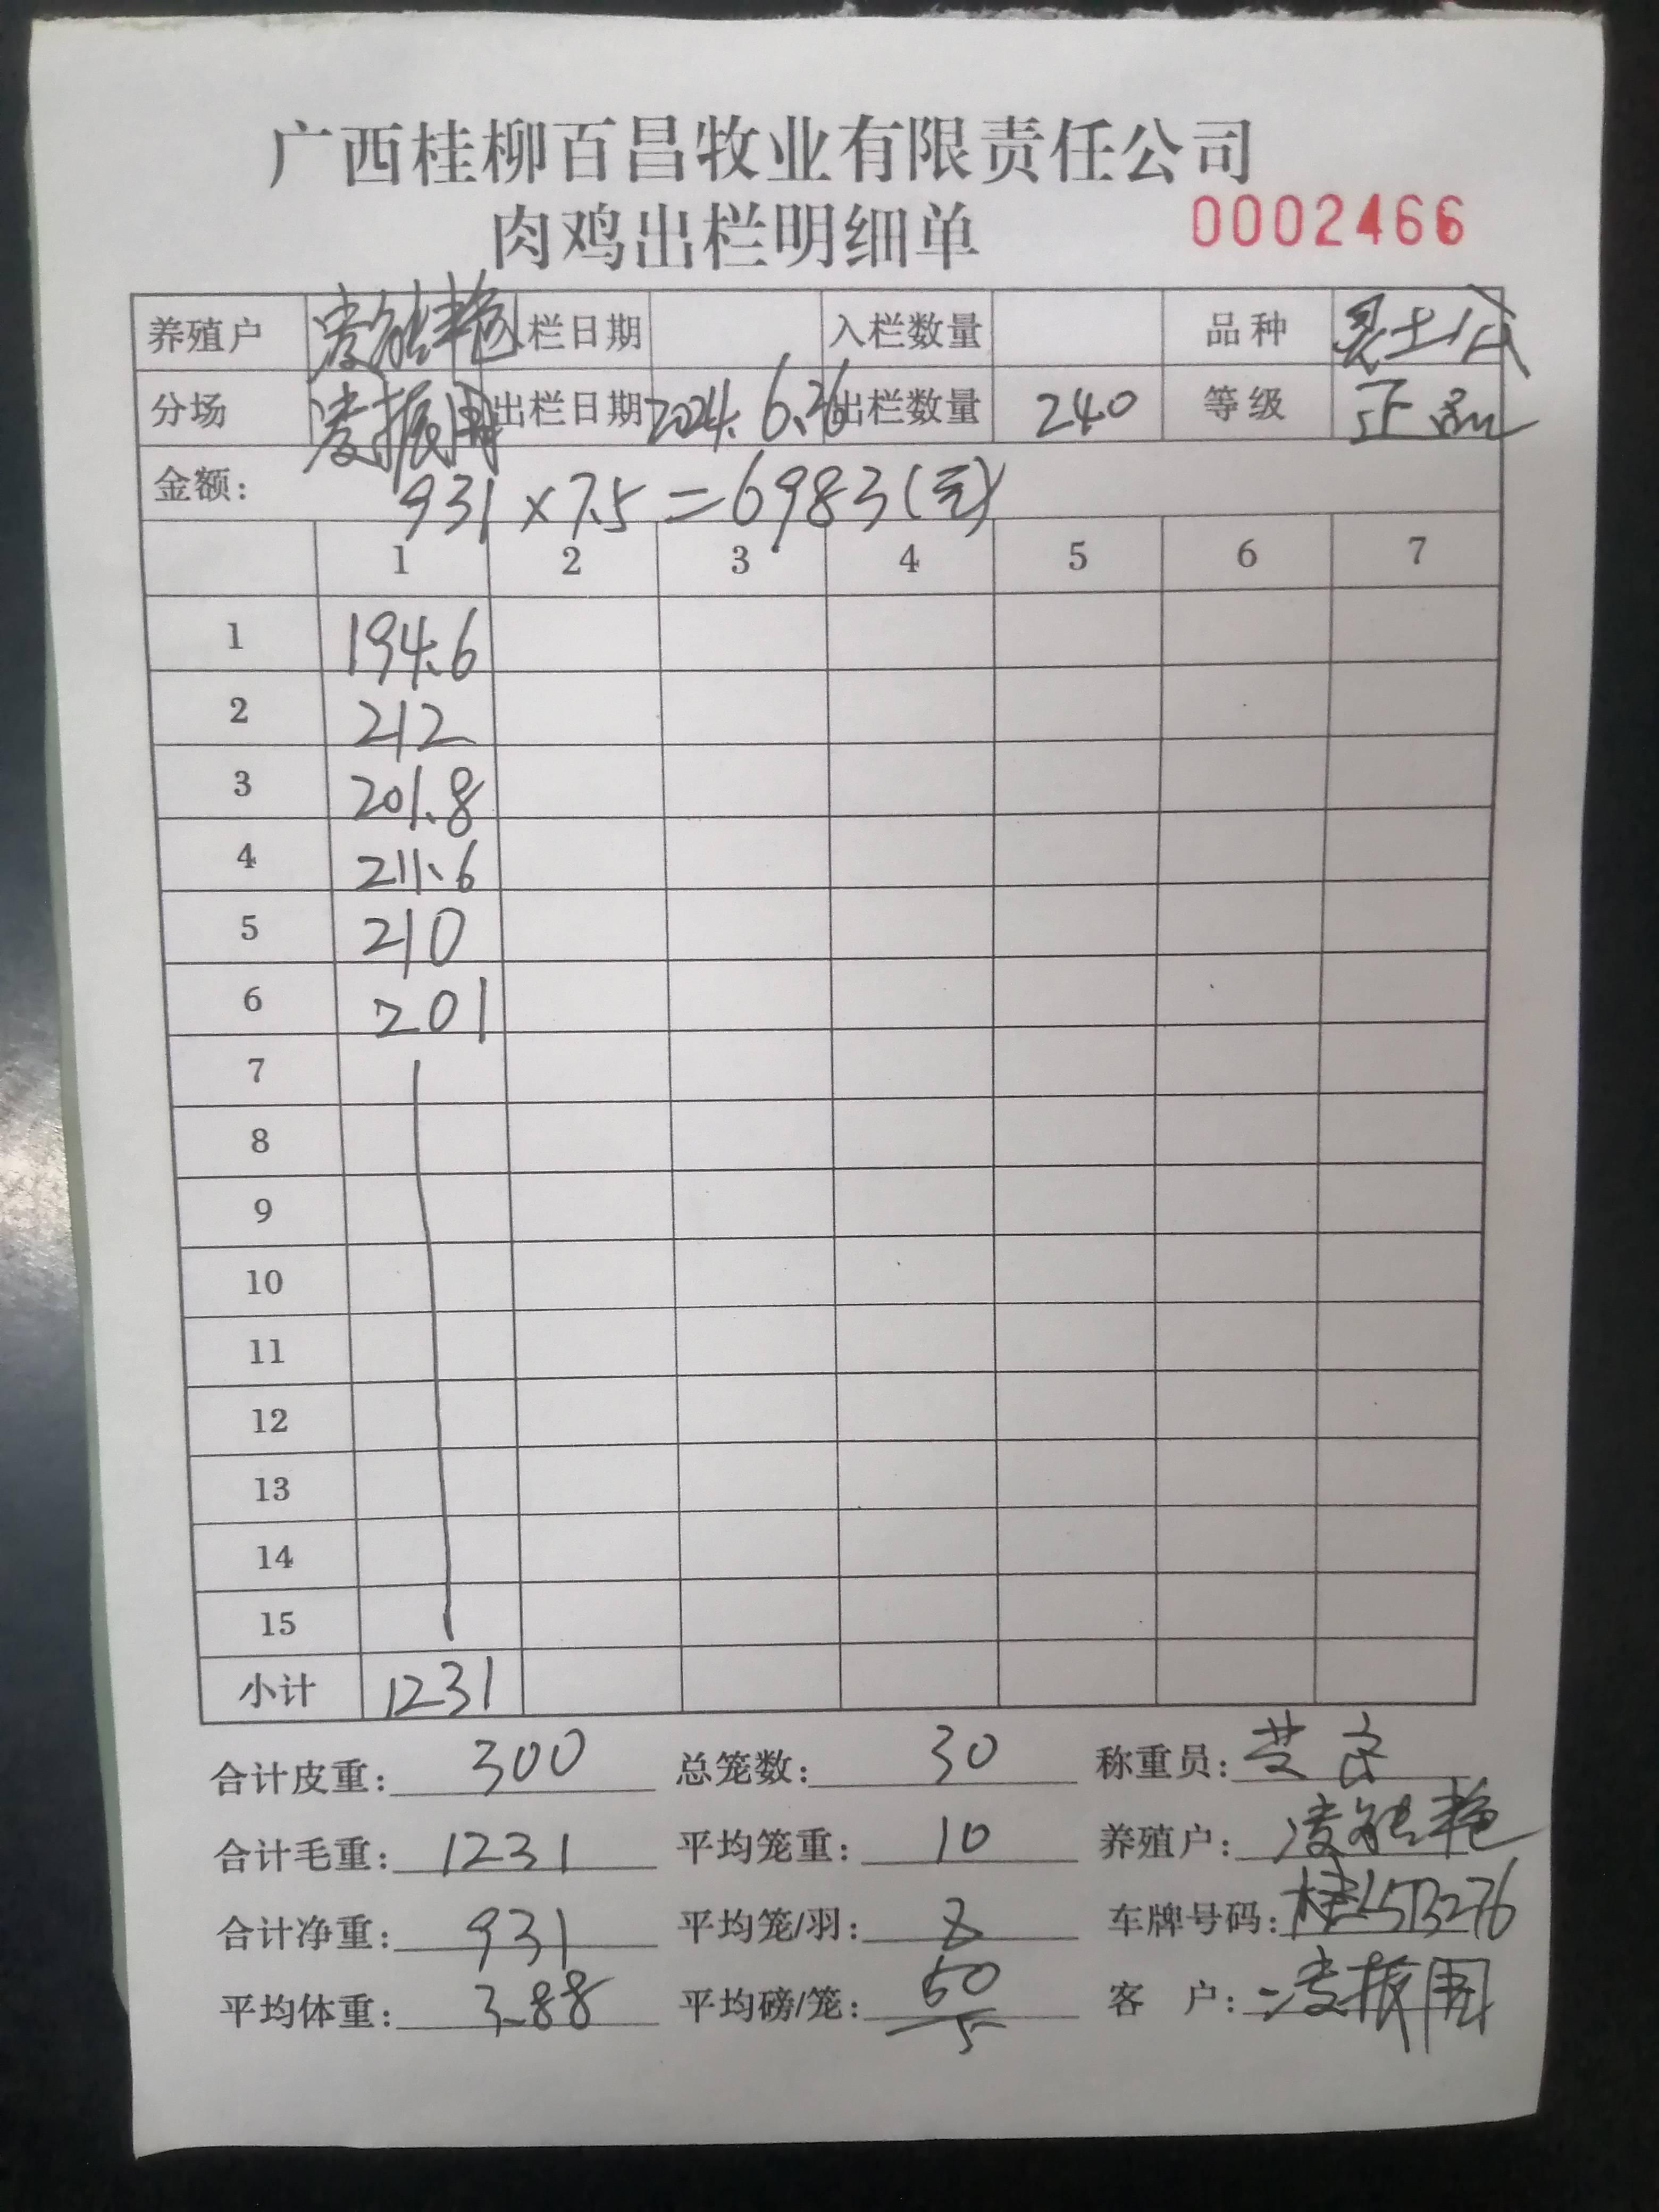 广西桂柳百昌牧业有限责任公司
肉鸡出栏明细单 0002466
养殖户 凌能艳 入栏日期 入栏数量 品种 灵土公
分场 凌振用 出栏日期 2024.6.26 出栏数量 240 等级 正品
金额: 931×7.5=6983(元)
1 2 3 4 5 6 7
1 194.6
2 212
3 201.8
4 211.6
5 210
6 201
7
8
9
10
11
12
13
14
15
小计 1231
合计皮重: 300 总笼数: 30 称重员:
合计毛重: 1231 平均笼重: 10 养殖户: 凌能艳
合计净重: 931 平均笼/羽: 8 车牌号码:
平均体重: 3.88 平均磅/笼: 5 客 户: 凌振用